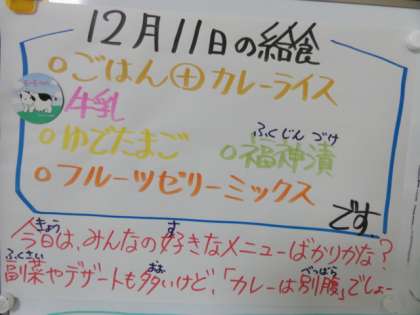 12月11日の給食
○ごはん⊕カレーライス
牛乳
○ゆでたまご ○福神漬
ふくじんづけ
○フルーツゼリーミックス
です。
今日は、みんなの好きなメニューばかりかな?
きょう す
副菜やデザートも多いけど、「カレーは別腹」でしょー
ふくさい おお べつばら